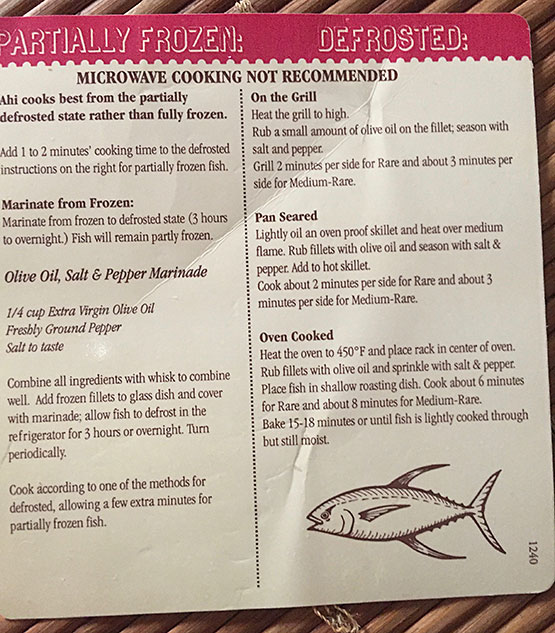 PARTIALLY FROZEN:
DEFROSTED:
MICROWAVE COOKING NOT RECOMMENDED
Ahi cooks best from the partially
defrosted state rather than fully frozen.
Add 1 to 2 minutes' cooking time to the defrosted
instructions on the right for partially frozen fish.
Marinate from Frozen:
Marinate from frozen to defrosted state (3 hours
to overnight.) Fish will remain partly frozen.
Olive Oil, Salt & Pepper Marinade
1/4 cup Extra Virgin Olive Oil
Freshly Ground Pepper
Salt to taste
Combine all ingredients with whisk to combine
well. Add frozen fillets to glass dish and cover
with marinade; allow fish to defrost in the
refrigerator for 3 hours or overnight. Turn
periodically.
Cook according to one of the methods for
defrosted, allowing a few extra minutes for
partially frozen fish.
On the Grill
Heat the grill to high.
Rub a small amount of olive oil on the fillet; season with
salt and pepper.
Grill 2 minutes per side for Rare and about 3 minutes per
side for Medium-Rare.
Pan Seared
Lightly oil an oven proof skillet and heat over medium
flame. Rub fillets with olive oil and season with salt &
pepper. Add to hot skillet.
Cook about 2 minutes per side for Rare and about 3
minutes per side for Medium-Rare.
Oven Cooked
Heat the oven to 450°F and place rack in center of oven.
Rub fillets with olive oil and sprinkle with salt & pepper.
Place fish in shallow roasting dish. Cook about 6 minutes
for Rare and about 8 minutes for Medium-Rare.
Bake 15-18 minutes or until fish is lightly cooked through
but still moist.
1240